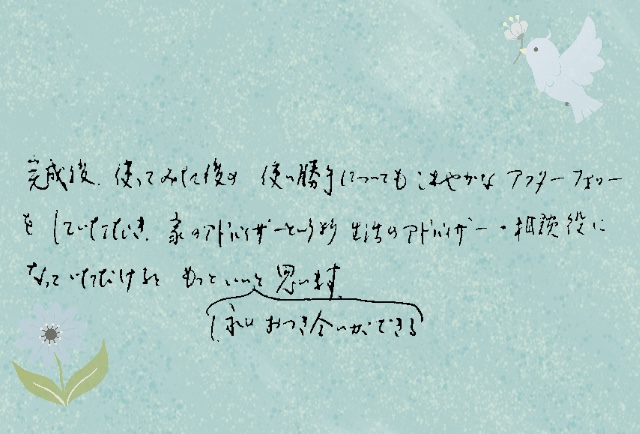 完成後、使ってみた後の 使い勝手についても こまやかな アフターフォロー
をしていただき、家のアドバイザーというより 生活のアドバイザー・相談役に
なっていただけると もっといいと思います。
末永くおつき合いができる